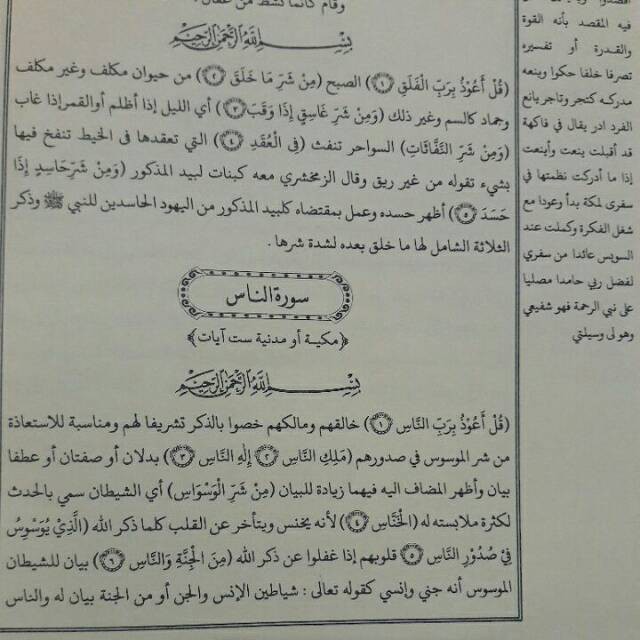 وقام كأنما نشط من عقال .
بِسْمِ اللَّهِ الرَّحْمَنِ الرَّحِيمِ
(قُلْ أَعُوذُ بِرَبِّ الْفَلَقِ ١) الصبح (مِنْ شَرِّ مَا خَلَقَ ٢) من حيوان مكلف وغير مكلف
وجماد كالسم وغير ذلك (وَمِنْ شَرِّ غَاسِقٍ إِذَا وَقَبَ ٣) أي الليل إذا أظلم أوالقمرإذا غاب
(وَمِنْ شَرِّ النَّفَّاثَاتِ) السواحر تنفث (فِي الْعُقَدِ ٤) التي تعقدها فى الخيط تنفخ فيها
بشيء تقوله من غير ريق وقال الزمخشري معه كبنات لبيد المذكور (وَمِنْ شَرِّ حَاسِدٍ إِذَا
حَسَدَ ٥) أظهر حسده وعمل بمقتضاه كلبيد المذكور من اليهود الحاسدين للنبي ﷺ وذكر
الثلاثة الشامل لها ما خلق بعده لشدة شرها .
سورة الناس
(مكية أو مدنية ست آيات)
بِسْمِ اللَّهِ الرَّحْمَنِ الرَّحِيمِ
(قُلْ أَعُوذُ بِرَبِّ النَّاسِ ١) خالقهم ومالكهم خصوا بالذكر تشريفا لهم ومناسبة للاستعاذة
من شر الموسوس في صدورهم (مَلِكِ النَّاسِ ٢ إِلَهِ النَّاسِ ٣) بدلان أو صفتان أو عطفا
بيان وأظهر المضاف اليه فيهما زيادة للبيان (مِنْ شَرِّ الْوَسْوَاسِ) أي الشيطان سمي بالحدث
لكثرة ملابسته له (الْخَنَّاسِ ٤) لأنه يخنس ويتأخر عن القلب كلما ذكر الله (الَّذِيْ يُوَسْوِسُ
فِيْ صُدُوْرِ النَّاسِ ٥) قلوبهم إذا غفلوا عن ذكر الله (مِنَ الْجِنَّةِ وَالنَّاسِ ٦) بيان للشيطان
الموسوس أنه جني وإنسي كقوله تعالى : شياطين الإنس والجن أو من الجنة بيان له والناس
فيه المقصد بأنه القوة
والقدرة أو تفسيره
تصرفا خلفا حكوا وينعه
مدركه كتجر وتاجر يانع
الفرد ادر يقال في فاكهة
قد أقبلت ينعت وأينعت
إذا ما أدركت نظمتها في
سفرى لمكة بدأ وعودا مع
شغل الفكرة وكملت عند
السويس عائدا من سفري
لفضل ربي حامدا مصليا
على نبي الرحمة فهو شفيعي
وهو لى وسيلتي